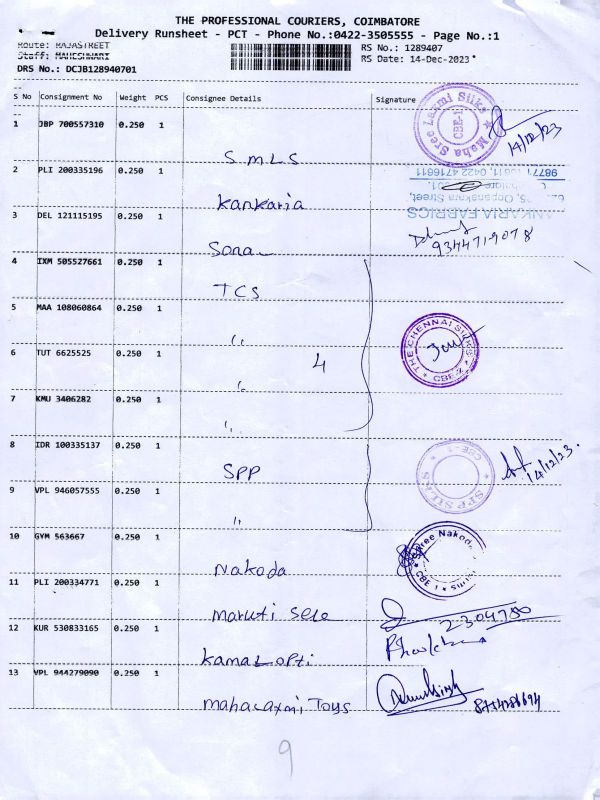 THE PROFESSIONAL COURIERS, COIMBATORE
Delivery Runsheet - PCT - Phone No.:0422-3505555 - Page No.:1
Route: RAJASTREET
RS No.: 1289407
Staff: MAHESHWARI
RS Date: 14-Dec-2023
DRS No.: DCJB128940701
S No Consignment No Weight PCS Consignee Details Signature
1 JBP 700557310 0.250 1
Maha Sree Laxmi Silks
CBE-1
14/12/23
S.M.L.S
2 PLI 200335196 0.250 1
Kankaria
ANKARIA FABRICS
Oppanakara Street,
0422 4716611
3 DEL 121115195 0.250 1
Sona
9344719078
4 IXM 505527661 0.250 1
TCS
5 MAA 108060864 0.250 1
"
THE CHENNAI SILKS
CBE-2
6 TUT 6625525 0.250 1
"
4
7 KMU 3406282 0.250 1
"
8 IDR 100335137 0.250 1
SPP
SPP SILKS
CBE-1
14/12/23.
9 VPL 946057555 0.250 1
"
10 GYM 563667 0.250 1
Nakoda
Shree Nakoda
CBE 1
11 PLI 200334771 0.250 1
maruti sele
2304780
12 KUR 530833165 0.250 1
kamal opti
13 VPL 944279090 0.250 1
mahalaxmi Toys
9